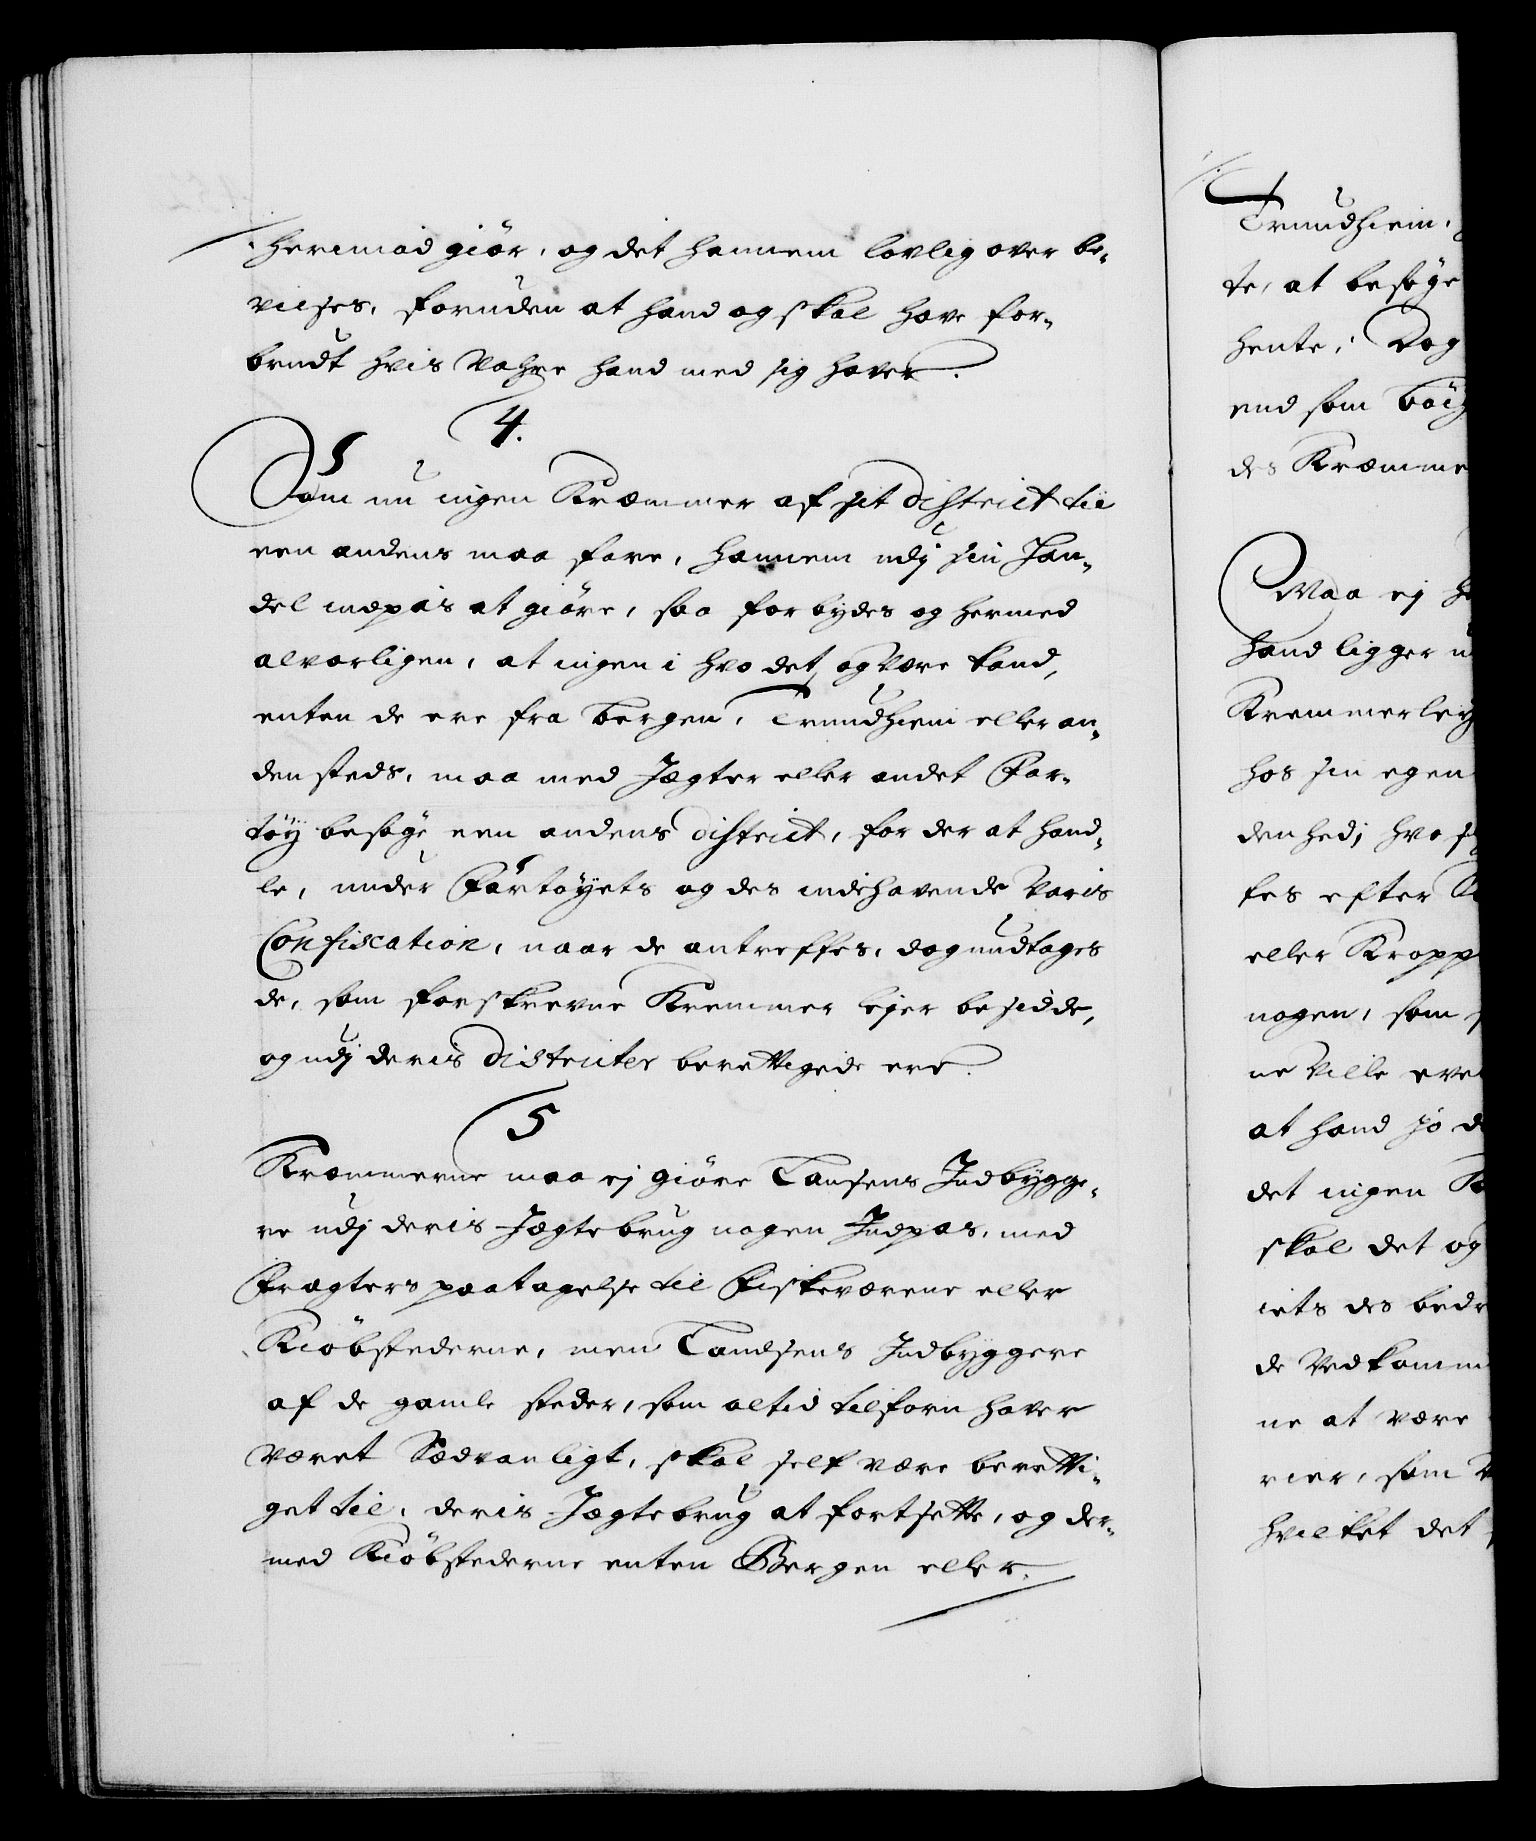 herimod giör, og det hannem lovlig over be-
vises, foruden at hand og skal have for-
brudt hvis Vahre hand med sig haver.
4.
Som nu ingen Kræmmer af sit District til
een andens maa fare, hannem udj sin Han-
del indpas at giöre, saa forbydes og hermed
alvorligen, at ingen i hvo det og være kand,
enten de ere fra Bergen, Trundhiem eller an-
den steds, maa med Jægter eller andet Far-
töy besöge een andens District, for der at hand-
le, under Fartöyets og des indehavende Varis
Confiscation, naar de antreffes, dog undtages
de, som forskrevne Kremmer lejer besidde,
og udj deris Districter berettigede ere.
5
Kræmmerne maa ej giöre Landsens Indbygge-
re udj deris Jægtebrug nogen Indpas, med
Fragters paatagelse til Fiskeværene eller
Kiöbstederne, men Landsens Indbyggere
af de gamle steder, som altid tilforn haver
været Sædvanligt, skal self være beretti-
get til, deris Jægtebrug at fortsette, og der-
med Kiöbstederne enten Bergen eller
Trundhiem,
te, at besöge
hente; Dog
end som böig
des Kræmme
Maa ej
hand ligger
Kremmerley
hos sin egen
den hedj hvo
tes efter
eller Kropp
nogen, som
ne Ville
at hand jo
det ingen
skal det og
iets des bedr
de Vedkomm
ne at være
rier, som
hvilket det